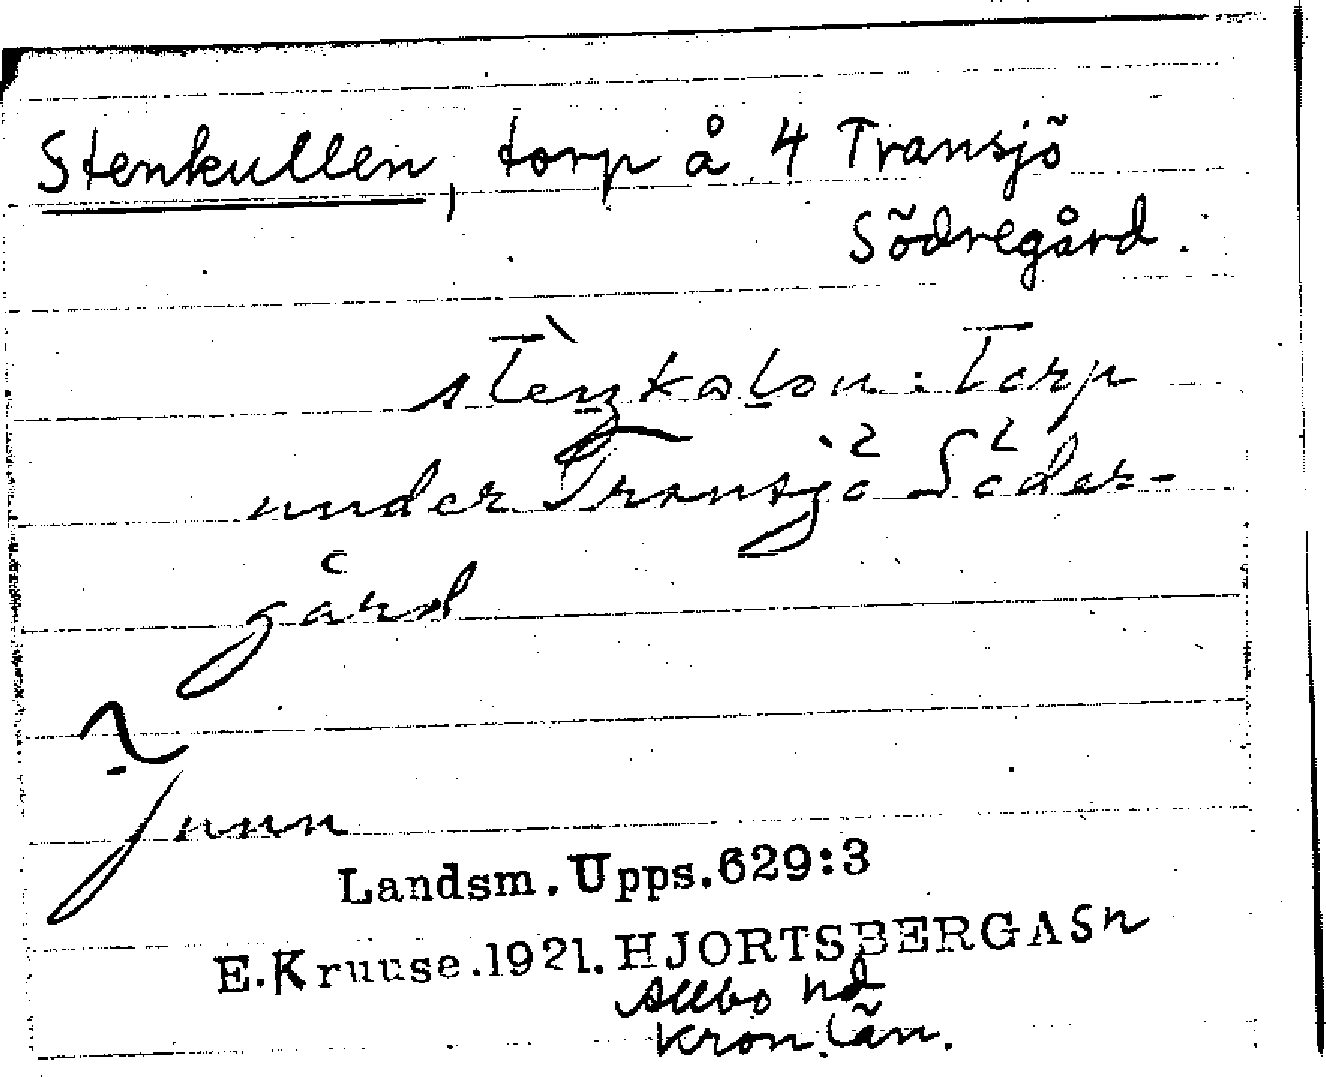 Stenkullen, torp å 4 Transjö
Södregård.
under Transjö Söder-
gård
Landsm. Upps. 629:3
E. Kruuse. 1921. HJORTSBERGA Sn
Allbo hd
Kron. län.